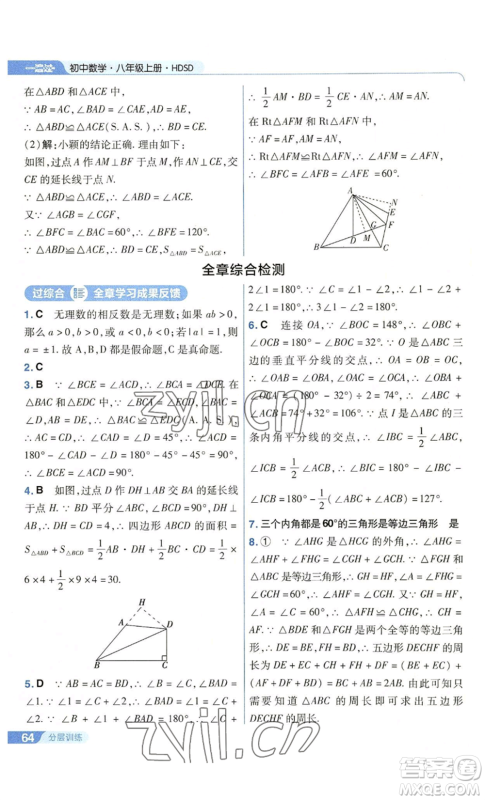 一遍过 初中数学·八年级上册·HDSD
在 △ABD 和 △ACE 中,
∵ AB = AC, ∠BAD = ∠CAE, AD = AE,
∴ △ABD≌△ACE(S.A.S.), ∴ BD = CE.
(2)解:小颖的结论正确. 理由如下:
如图,过点 A 作 AM⊥BF 于点 M, AN⊥CE, 交
CE 的延长线于点 N.
∵ △ABD≌△ACE, ∴ ∠ABD = ∠ACE.
又∵ ∠AGB = ∠CGF,
∴ ∠BFC = ∠BAC = 60°, ∴ ∠BFE = 120°.
∵ △ABD≌△ACE, ∴ BD = CE, S△ABD = S△ACE,
∴ 1/2 AM·BD = 1/2 CE·AN, ∴ AM = AN.
在 Rt△AFM 和 Rt△AFN 中,
∵ AF = AF, AM = AN,
∴ Rt△AFM≌Rt△AFN, ∴ ∠AFM = ∠AFN,
∴ ∠BFC = ∠AFB = ∠AFE = 60°.
A
N
E
F
B
C
全章综合检测
过综合 全章学习成果反馈
1. C 无理数的相反数是无理数;如果 ab > 0,
那么 a > 0, b > 0 或 a < 0, b < 0;若 |a| = 1, 则
a = ±1. 故 A,B,D 都是假命题,C 是真命题.
2. C
3. B ∵ ∠BCE = ∠ACD, ∴ ∠BCA = ∠ECD. 在
△BAC 和 △EDC 中, ∵ ∠BCA = ∠ECD, ∠A
= ∠D, AB = DE, ∴ △BAC≌△EDC(A.A.S.),
∴ AC = CD. ∵ ∠A = ∠D = 45°, ∴ ∠ACD =
180° - ∠CAD - ∠D = 180° - 45° - 45° = 90°,
∴ ∠BCE = ∠ACD = 90°.
4. B 如图,过点 D 作 DH⊥AB 交 BA 的延长线
于点 H. ∵ BD 平分∠ABC, DH⊥AB, DC⊥BC,
∴ DH = CD = 4, ∴ 四边形 ABCD 的面积 =
S△ABD + S△BCD = 1/2 AB·DH + 1/2 BC·CD = 1/2
×6×4 + 1/2 ×9×4 = 30.
H
A
D
B
C
5. D ∵ AB = AC = BD, ∴ ∠B = ∠C = 180° -
2∠1. ∵ ∠B + ∠1 + ∠BAD = 180°, ∴ ∠BAD =
180° - ∠B - ∠1
2∠1 = 180°, ∴ 3∠1 - ∠2 = 180°.
6. C 连接 OA, ∵ ∠BOC = 148°, ∴ ∠OBC +
∠OCB = 180° - ∠BOC = 32°. ∵ O 是△ABC 三
边的垂直平分线的交点, ∴ OA = OB = OC,
∴ ∠OAB = ∠OBA, ∠OAC = ∠OCA, ∴ ∠OBA +
∠OCA = ∠OAB + ∠OAC = 1/2
∠ACB = 74° + 32° = 106°. ∵ 点 I 是△ABC 的三
条内角平分线的交点, ∴ ∠IBC = 1/2 ∠ABC,
∠ICB = 1/2
∠ICB) = 180° - 1/2(∠ABC + ∠ACB) = 127°.
7. 三个内角都是 60°的三角形是等边三角形 是
8. ① ∵ ∠AHG 是△CHG 的外角, ∴ ∠AHF +
∠FHG = ∠CGH + ∠GCH.
∠GCH = 60°, ∴ ∠AHF = ∠CGH.
△FGH 是等边三角形, ∴ GH = HF, ∠A = ∠C =
60°, ∴ △AFH≌△CHG, ∴ AF = CH.
又∵ △BDE 和△FGH 是两个全等的等边三角
形, ∴ BE = FH = HF = DF, ∴ 五边形 DECHF 的周长
= DE + EC + CH + HF + DF = BD + CE + AF + BE +
DF = (BD + DF + AF) + (CE + BE) = AB + BC,
∴ 只需知道△ABC 的周长即可知道五边形
DECHF 的周长.
64 分层训练
zyjl.cn
zyjl.cn